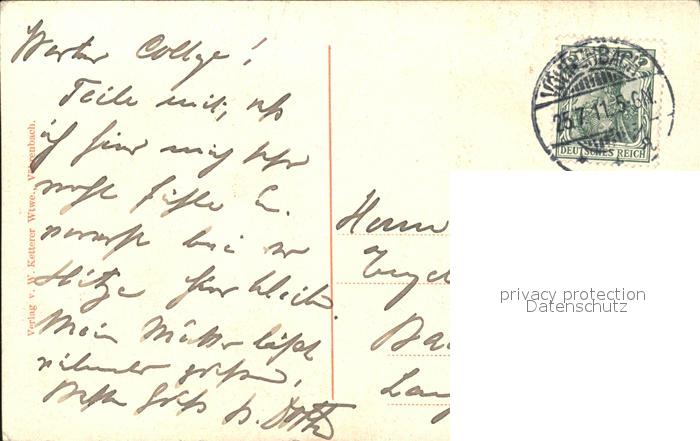 Werter Collge!
Teile mit, daß
ich hier mich sehr
wohl fühle u.
bei der
Hitze hier bleibe.
Mein Mutter läßt
vielmals grüßen.
Beste Grüße
Verlag v. W. Ketterer Wtwe., Vöhrenbach.
VÖHRENBACH
25.7.11.5-6N.
DEUTSCHES REICH
Herrn
Engel
Ba
Lan
privacy protection
Datenschutz